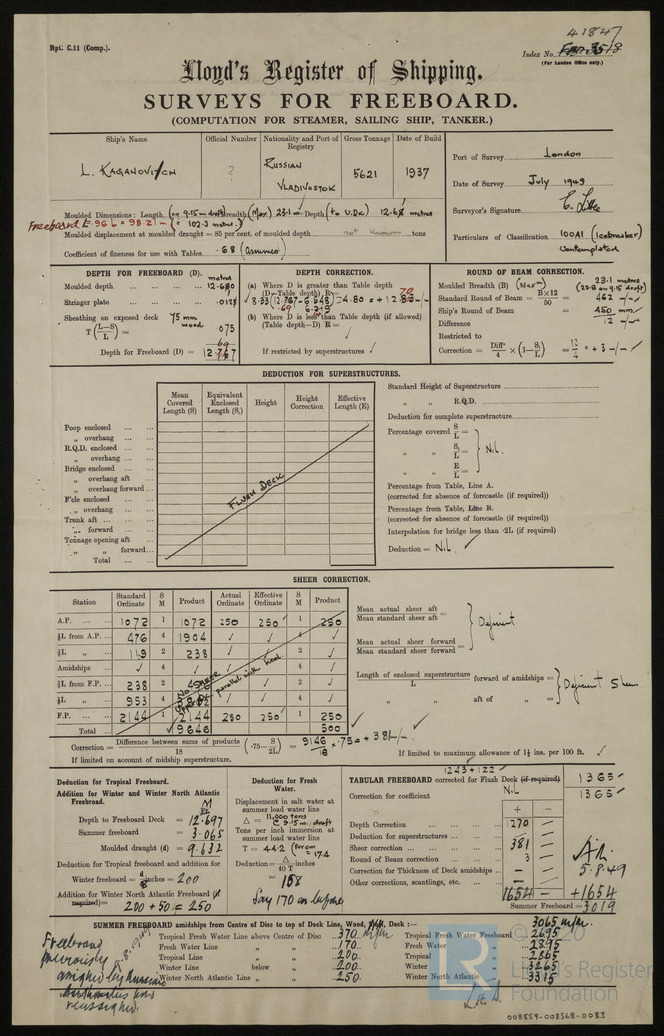 Rpt. C.11 (Comp.).
41847
Index No.
(For London Office only.)
Lloyd's Register of Shipping.
SURVEYS FOR FREEBOARD.
(COMPUTATION FOR STEAMER, SAILING SHIP, TANKER.)
Ship's Name
Official Number
Nationality and Port of Registry
Gross Tonnage
Date of Build
L. KAGANOVITCH
?
RUSSIAN
VLADIVOSTOK
5621
1937
Port of Survey London
Date of Survey July 1949
Surveyor's Signature
Particulars of Classification 100A1 (Icebreaker)
Contemplated
Moulded Dimensions: Length (on 9.15 m draft) Breadth (Max) 23.1 m Depth (to U.Dk) metres
Freeboard L = .96 L = 98.21 (L = 102.3 metres)
Moulded displacement at moulded draught = 85 per cent. of moulded depth not known tons
Coefficient of fineness for use with Tables .68 (assumed)
DEPTH FOR FREEBOARD (D).
metres
Moulded depth 12.680
Stringer plate .012
Sheathing on exposed deck 75 mm wood
T (L−S / L) = 075
Depth for Freeboard (D) = 12.767
DEPTH CORRECTION.
(a) Where D is greater than Table depth
(D−Table depth) R=
(b) Where D is less than Table depth (if allowed)
(Table depth−D) R =
If restricted by superstructures
ROUND OF BEAM CORRECTION.
Moulded Breadth (B) (Max) 23.1 metres
(22.8 on 9.15 draft)
Standard Round of Beam = B×12 / 50 = 462 m/m
Ship's Round of Beam = 450 mm
Difference 12 m/m
Restricted to
Correction = Diff / 4 × (1−S₁ / L) = 12 / 4 = + 3 m/m
DEDUCTION FOR SUPERSTRUCTURES.
Mean Covered Length (S)
Equivalent Enclosed Length (S₁)
Height
Height Correction
Effective Length (E)
Poop enclosed
„ overhang
R.Q.D. enclosed
„ overhang
Bridge enclosed
„ overhang aft
„ overhang forward
F'cle enclosed
„ overhang
Trunk aft
„ forward
Tonnage opening aft
„ „ forward
Total
FLUSH DECK
Standard Height of Superstructure
„ „ R.Q.D.
Deduction for complete superstructure
Percentage covered S / L =
„ „ S₁ / L =
„ „ E / L =
Nil.
Percentage from Table, Line A.
(corrected for absence of forecastle (if required))
Percentage from Table, Line B.
(corrected for absence of forecastle (if required))
Interpolation for bridge less than ·2L (if required)
Deduction = Nil.
SHEER CORRECTION.
Station
Standard Ordinate
S M
Product
Actual Ordinate
Effective Ordinate
S M
Product
A.P. 1072 1 1072 250 250 1 250
⅙L from A.P. 476 4 1904 4
⅓L „ 119 2 238 2
Amidships 4 4
⅓L from F.P. 238 2 2
⅙L „ 953 4 4
F.P. 2144 1 2144 250 250 1 250
Total 9646 500
No Sheer
Upper Dk parallel with keel
Mean actual sheer aft
Mean standard sheer aft =
Mean actual sheer forward
Mean standard sheer forward =
Deficient
Length of enclosed superstructure / L forward of amidships =
„ aft of „ =
Deficient Sheer
Correction = Difference between sums of products / 18 (·75− S / 2L) = 9146 / 18 × .75 = + 381 m/m
If limited on account of midship superstructure.
If limited to maximum allowance of 1½ ins. per 100 ft.
Deduction for Tropical Freeboard.
Addition for Winter and Winter North Atlantic Freeboard.
M
Depth to Freeboard Deck = 12.697
Summer freeboard = 3.065
Moulded draught (d) = 9.632
Deduction for Tropical freeboard and addition for
Winter freeboard = inches = 200
Addition for Winter North Atlantic Freeboard (if required)=
200 + 50 = 250
Deduction for Fresh Water.
Displacement in salt water at summer load water line
△ = 11,000 tons
@ 9.15 m. draft
Tons per inch immersion at summer load water line
T = 44.2
Deduction = △ / 40 T
= 158
Say 170 as before
TABULAR FREEBOARD corrected for Flush Deck (if required)
1243 + 122
1365
Correction for coefficient Nil
1365
+ −
Depth Correction 270 −
Deduction for superstructures −
Sheer correction 381 −
Round of Beam correction 3 −
Correction for Thickness of Deck amidships −
Other corrections, scantlings, etc.
1654 −
+1654
5.8.49
Summer Freeboard = 3019
SUMMER FREEBOARD amidships from Centre of Disc to top of Deck Line, Wood, Deck :— 3065 m/m.
Tropical Fresh Water Line above Centre of Disc 370 m/m
Fresh Water Line „ „ 170
Tropical Line „ „ 200
Winter Line below „ 200
Winter North Atlantic Line „ „ 250
Tropical Fresh Water Freeboard 2695
Fresh Water „ 2895
Tropical „ 2865
Winter „ 3265
Winter North Atlantic „ 3315
Freeboard
previously
assigned by Russian
reassigned.
© 2020
LR
Lloyd's Register
Foundation
008559-008568-0083